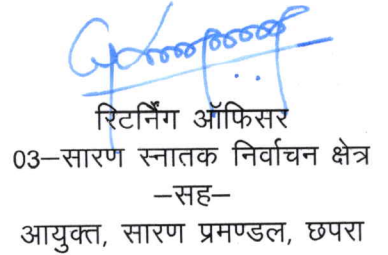 रिटर्निंग ऑफिसर
03–सारण स्नातक निर्वाचन क्षेत्र
–सह–
आयुक्त, सारण प्रमण्डल, छपरा